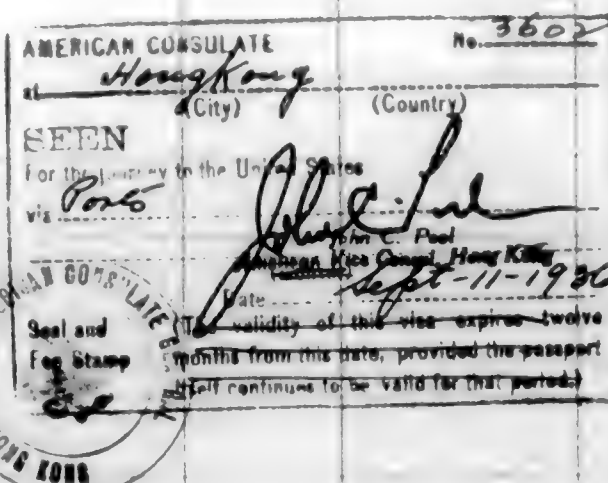 AMERICAN CONSULATE No. 3602
at HongKong
(City) (Country)
SEEN
For the journey to the United States
via Ports
John C. Pool
American Vice Consul, Hong Kong
Date Sept-11-1930
Seal and
Fee Stamp
(The validity of this visa expires twelve
months from this date, provided the passport
itself continues to be valid for that period.)
AMERICAN CONSULATE GENERAL
HONG KONG